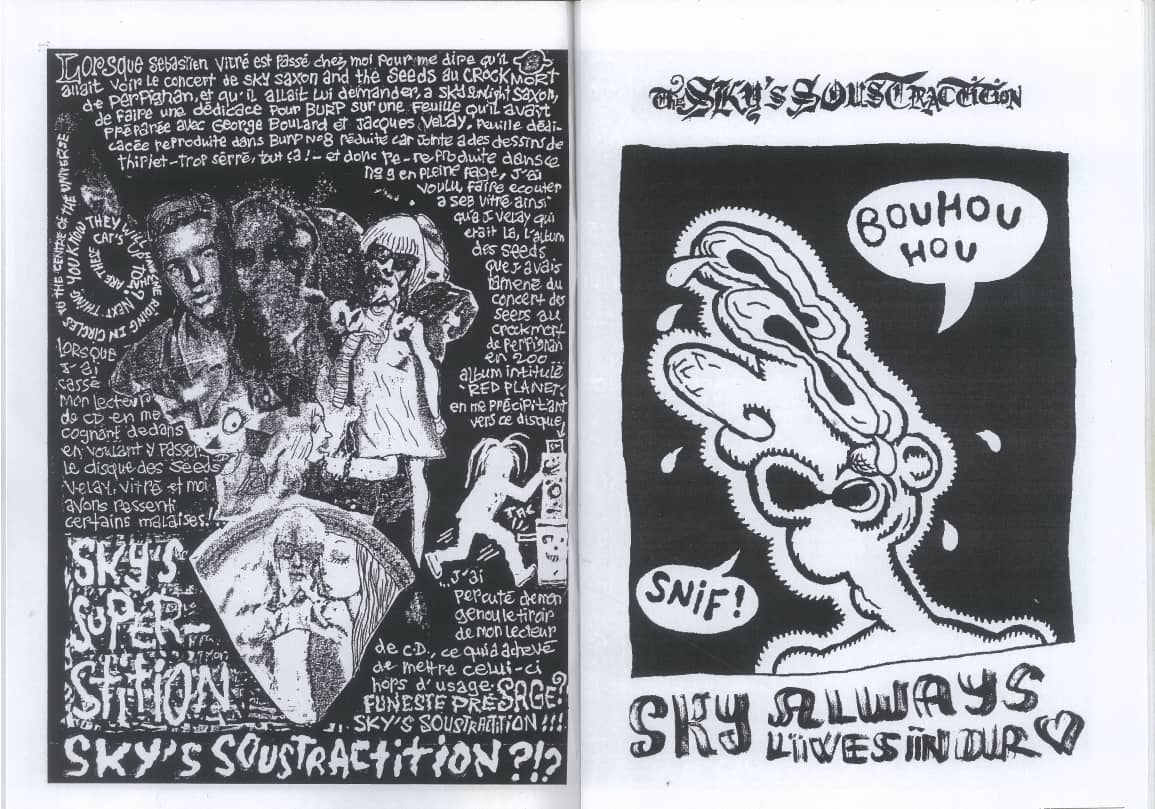 Lorsque Sebastien Vitré est passé chez moi pour me dire qu'il
allait voir le concert de Sky Saxon and the Seeds au Crockmort
de Perpignan, et qu'il allait lui demander, a Sky Sunlight Saxon,
de faire une dédicace pour Burp sur une feuille qu'il avait
préparée avec George Boulard et Jacques Velay, feuille dédi-
cacée reproduite dans Burp No8 réduite car jointe a des dessins de
thiriet-trop serré, tout ça!- et donc re-reproduite dans ce
no 9 en pleine page, J'ai
voulu faire ecouter
a Seb Vitré ainsi
qu'a J. Velay qui
etait là, l'album
des Seeds
que j'avais
ramené du
concert des
Seeds au
Crockmort
de Perpignan
en 200
album intitulé
"RED PLANET".
en me précipitant
vers ce disque
HAVE ONE RIDING IN CIRCLES IN THE CENTRE OF THE UNIVERSE
NEXT THING YOU KNOW THEY WILL
ARE THESE
CAT'S UP TO?
lorsque
j'ai
cassé
mon lecteur
de CD en me
cognant dedans
en voulant y passer
le disque des Seeds
Velay, Vitré et moi
avons ressenti
certains malaises!!
TAC
...J'ai
percuté de mon
genou le tiroir
de mon lecteur
de C.D., ce qui a achevé
de mettre celui-ci
hors d'usage.
FUNESTE PRÉSAGE?
SKY'S SOUSTRACTITION!!!
SKY'S
SUPER-
STITION
SKY'S SOUSTRACTITION?!?
The SKY'S SOUSTRACTITION
BOUHOU
HOU
SNIF!
SKY ALWAYS
LIIVES IIN OUR